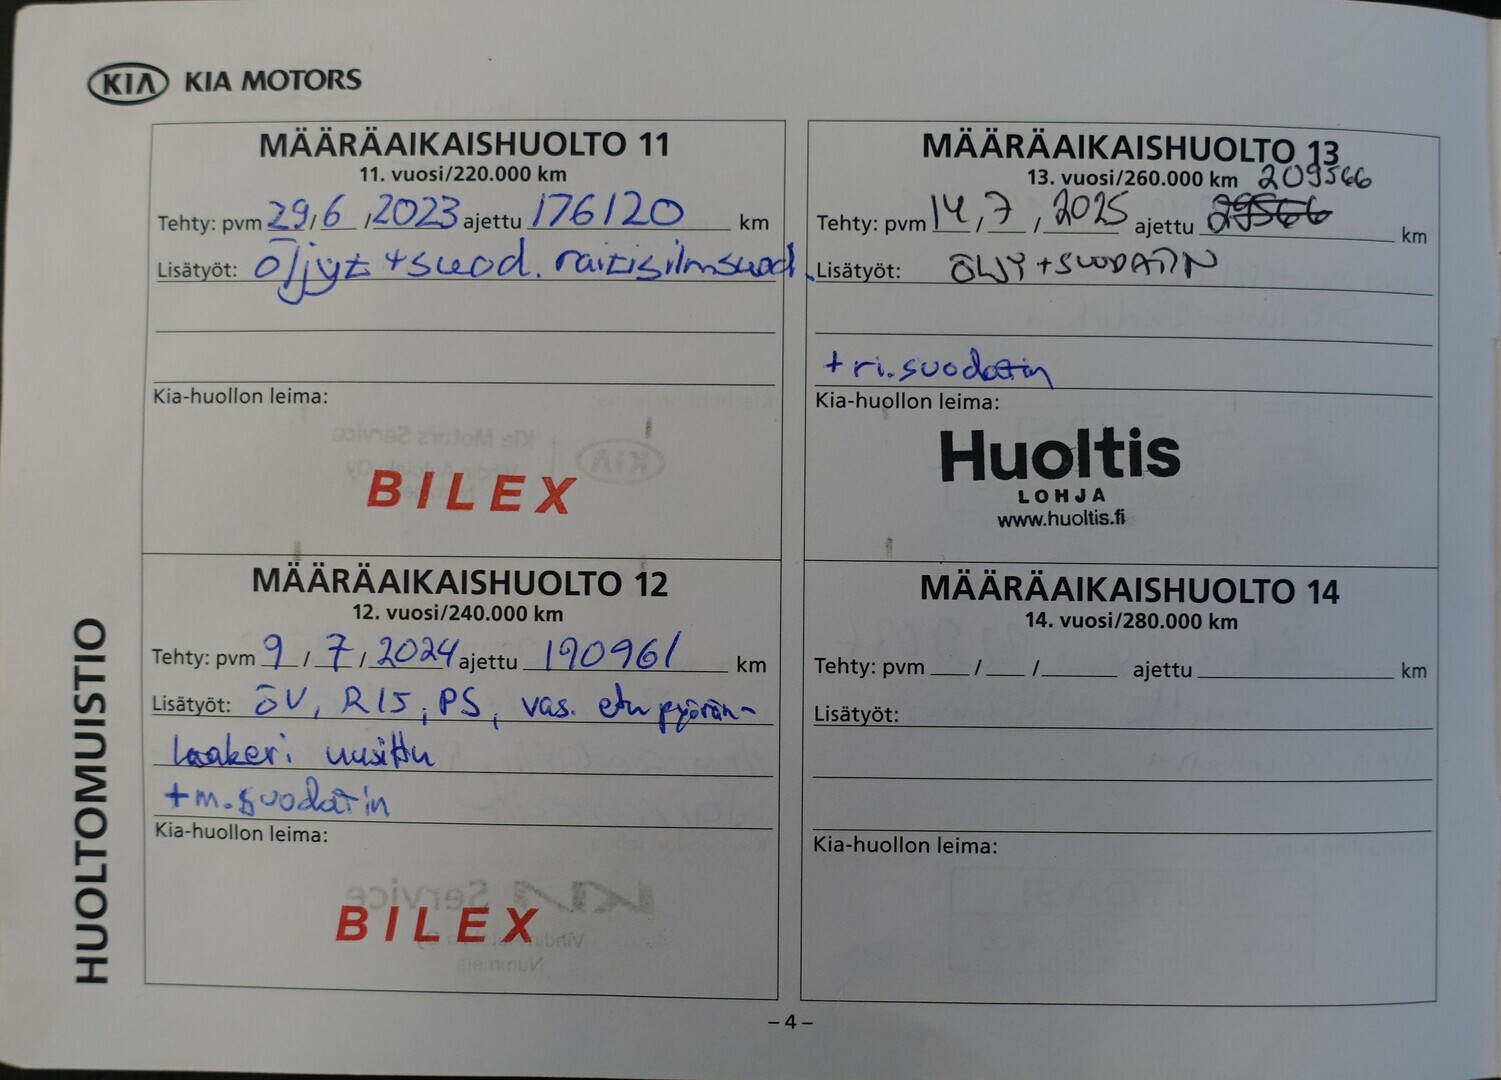 KIA KIA MOTORS
MÄÄRÄAIKAISHUOLTO 11
11. vuosi/220.000 km
Tehty: pvm 29/6/2023 ajettu 176120 km
Lisätyöt: Öljyt + suod. raitisilmsuod.
Kia-huollon leima:
BILEX
MÄÄRÄAIKAISHUOLTO 12
12. vuosi/240.000 km
Tehty: pvm 9/7/2024 ajettu 190961 km
Lisätyöt: ÖV, RIS, PS, vas. etupyörän-
laakeri uusittu
+ m. suodatin
Kia-huollon leima:
BILEX
MÄÄRÄAIKAISHUOLTO 13
13. vuosi/260.000 km 209566
Tehty: pvm 14,7/2025 ajettu km
Lisätyöt: ÖLJY + SUODATIN
+ ri. suodatin
Kia-huollon leima:
Huoltis
LOHJA
www.huoltis.fi
MÄÄRÄAIKAISHUOLTO 14
14. vuosi/280.000 km
Tehty: pvm / / ajettu km
Lisätyöt:
Kia-huollon leima:
HUOLTOMUISTIO
– 4 –